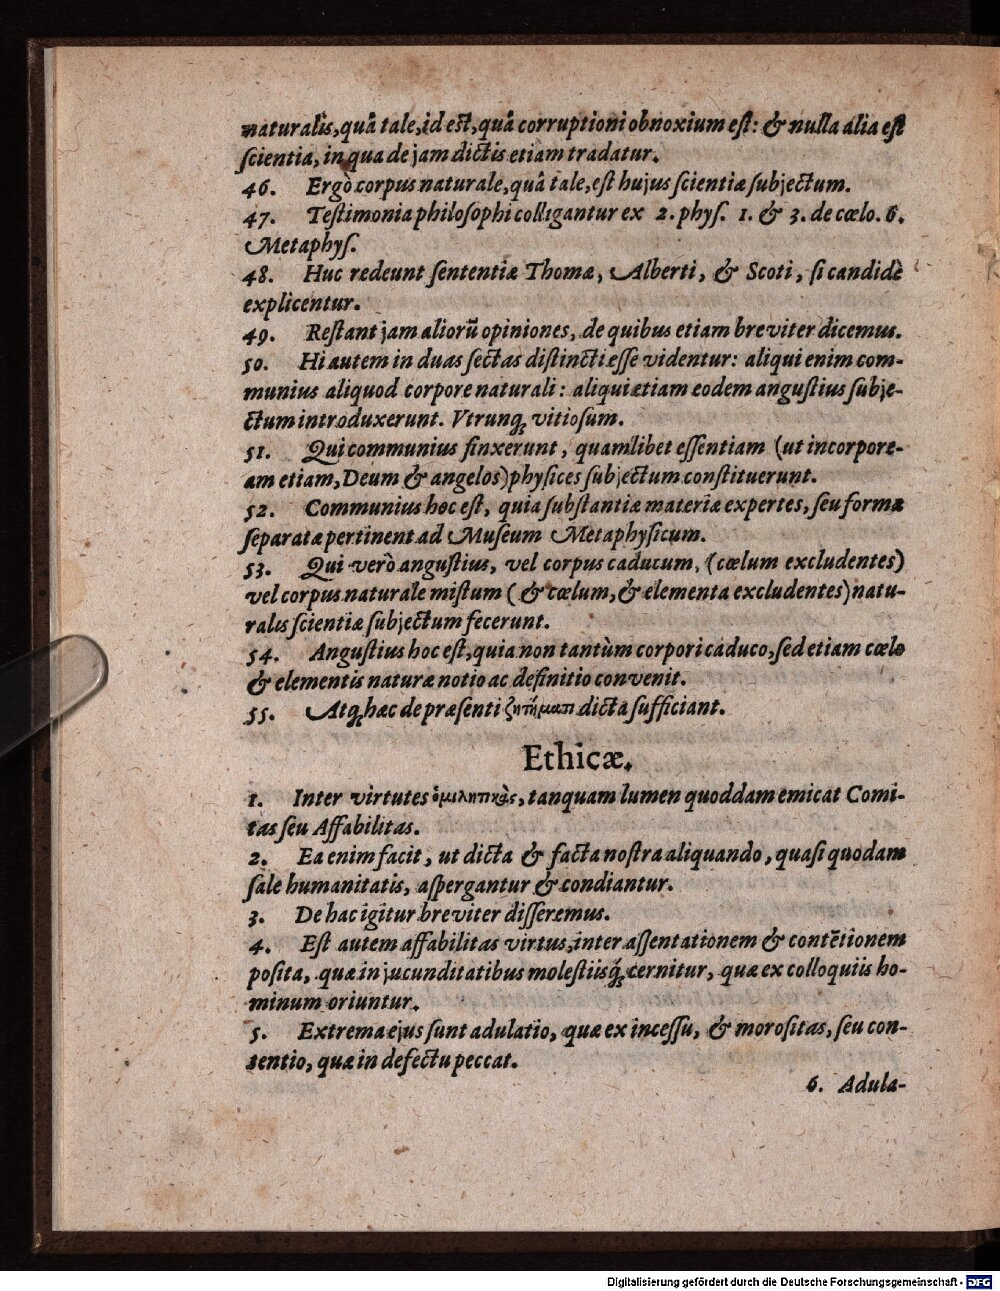 naturalis, quâ tale, id est, quâ corruptioni obnoxium est: & nulla alia est
scientia, in qua de jam dictis etiam tradatur.
46. Ergò corpus naturale, quâ tale, est hujus scientiæ subjectum.
47. Testimonia philosophi colligantur ex 2. phys. 1. & 3. de cœlo. 6.
Metaphys.
48. Huc redeunt sententiæ Thomæ, Alberti, & Scoti, si candidè
explicentur.
49. Restant jam aliorũ opiniones, de quibus etiam breviter dicemus.
50. Hi autem in duas sectas distincti esse videntur: aliqui enim com-
munius aliquod corpore naturali: aliqui etiam eodem angustius subje-
ctum introduxerunt. Vtrunq; vitiosum.
51. Qui communius finxerunt, quamlibet essentiam (ut incorpore-
am etiam, Deum & angelos) physices subjectum constituerunt.
52. Communius hoc est, quia substantiæ materiæ expertes, seu formæ
separatæ pertinent ad Museum Metaphysicum.
53. Qui verò angustius, vel corpus caducum, (cœlum excludentes)
vel corpus naturale mistum ( & cœlum, & elementa excludentes) natu-
ralis scientiæ subjectum fecerunt.
54. Angustius hoc est, quia non tantùm corpori caduco, sed etiam cœlo
& elementis naturæ notio ac definitio convenit.
55. Atq; hæc de præsenti ζητήματι dicta sufficiant.
Ethicæ.
1. Inter virtutes ὁμιλητικὰς, tanquam lumen quoddam emicat Comi-
tas seu Affabilitas.
2. Ea enim facit, ut dicta & facta nostra aliquando, quasi quodam
sale humanitatis, aspergantur & condiantur.
3. De hac igitur breviter disseremus.
4. Est autem affabilitas virtus, inter assentationem & contẽtionem
posita, quæ in jucunditatibus molestiisq́; cernitur, quæ ex colloquiis ho-
minum oriuntur.
5. Extrema ejus sunt adulatio, quæ ex incessu, & morositas, seu con-
tentio, quæ in defectu peccat.
6. Adula-
Digitalisierung gefördert durch die Deutsche Forschungsgemeinschaft - DFG